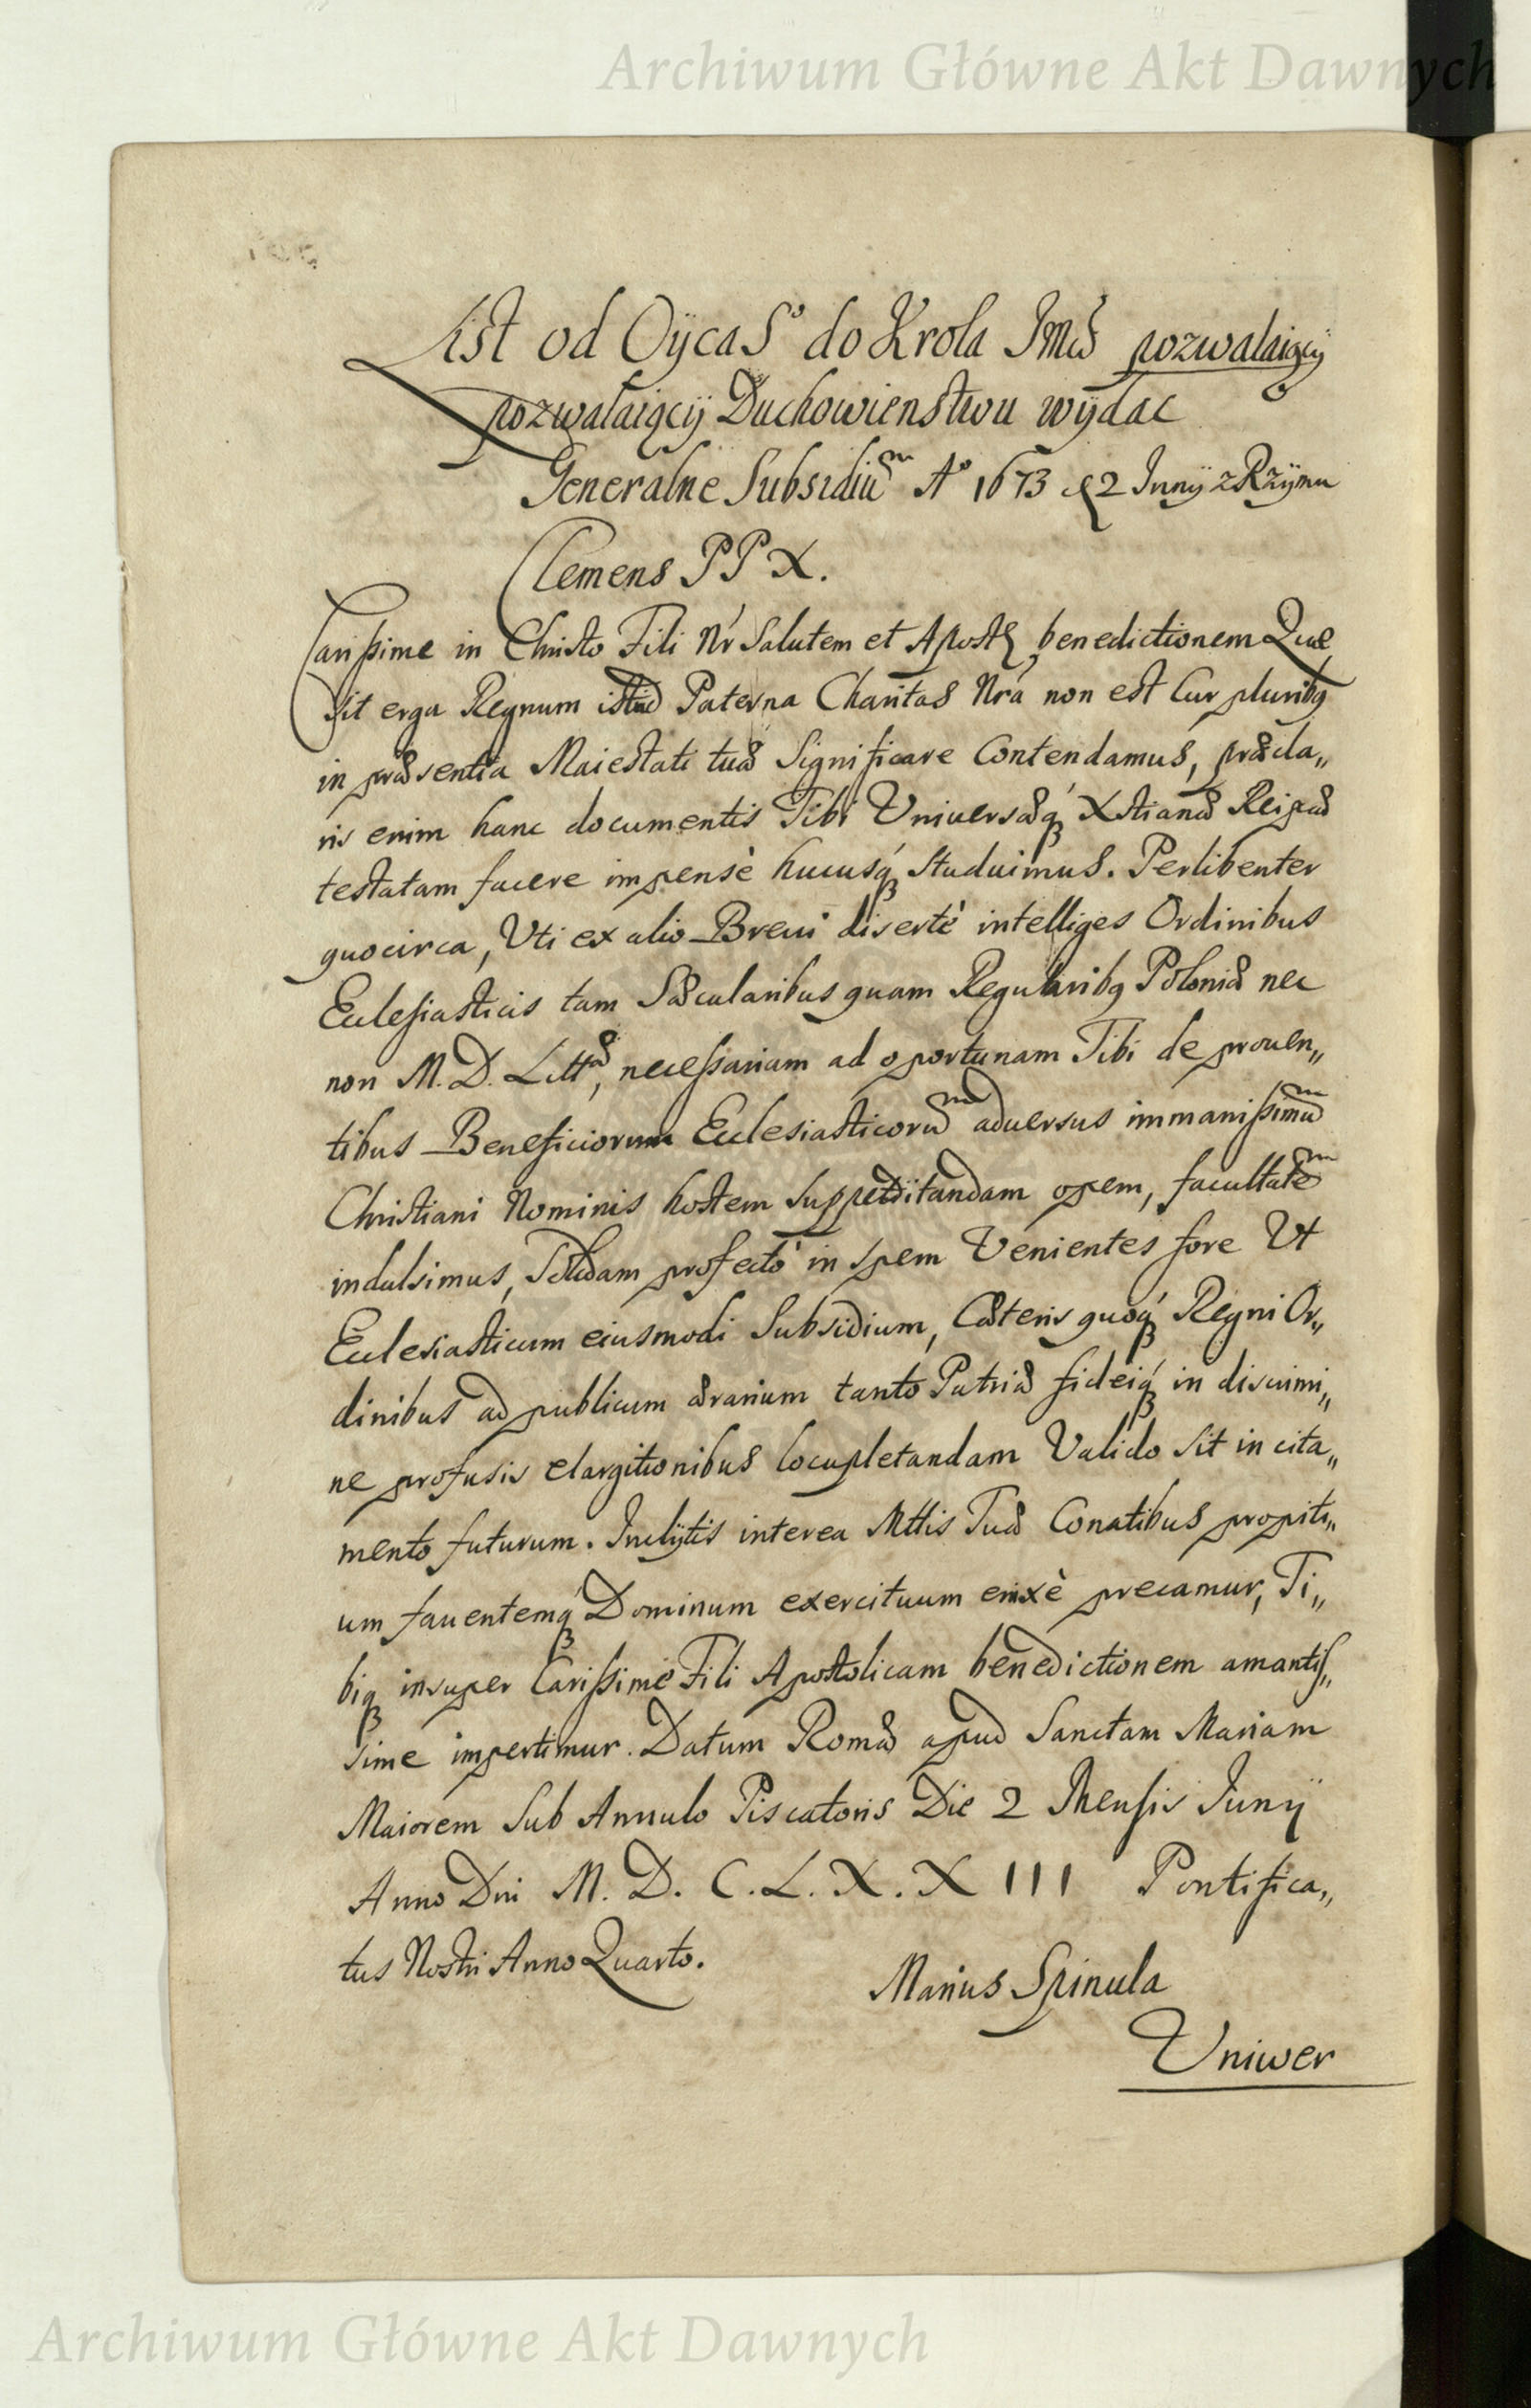 Archiwum Główne Akt Dawnych
List od Oÿca S° do Krola Jmći pozwalaiący
pozwalaiącÿ Duchowienstwu wÿdac
Generalne Subsidiū A° 1673 d 2 Junÿ z Rzÿmu
Clemens PP X.
Carissime in Christo Fili Nr Salutem et Apostꝭ benedictionem Quæ
sit erga Regnum istud Paterna Charitas Nrá non est Cur pluribꝫ
in præsentia Maiestati tuæ Significare Contendamus, præcla„
ris enim hanc documentis Tibi Vniversæq́ꝫ Xstianæ Reipcæ
testatam facere impensè hucusq́ꝫ Studuimus. Perlibenter
quocirca, Vti ex alio Breui disertè intelliges Ordinibus
Ecclesiasticis tam Sæcularibus quam Regularibꝫ Poloniæ nec
non M. D. Littæ, necessariam ad oportunam Tibi de prouen„
tibus Beneficiorum Ecclesiasticorū aduersus immanissimū
Christiani Nominis hostem Suppeditandam opem, facultatē
indulsimus, Solidam profectò in spem Venientes fore Vt
Ecclesiasticum eiusmodi Subsidium, Cæteris quoq́ꝫ Regni Or„
dinibus ad publicum ærarium tanto Patriæ fideiq́ꝫ in discrimi„
ne profusis elargitionibus locupletandam Valido sit in cita„
mento futurum. Inclÿtis interea Mttis Tuæ Conatibus propiti„
um fauentemq́ꝫ Dominum exercituum enixè precamur, Ti„
biqꝫ insuper Carissime Fili Apostolicam benedictionem amantis„
sime impertimur. Datum Romæ apud Sanctam Mariam
Maiorem Sub Annulo Piscatoris Die 2 Mensis Junÿ
Anno Dni M. D. C. L. X. X III Pontifica„
tus Nostri Anno Quarto.
Marius Spinula
Vniwer
Archiwum Główne Akt Dawnych